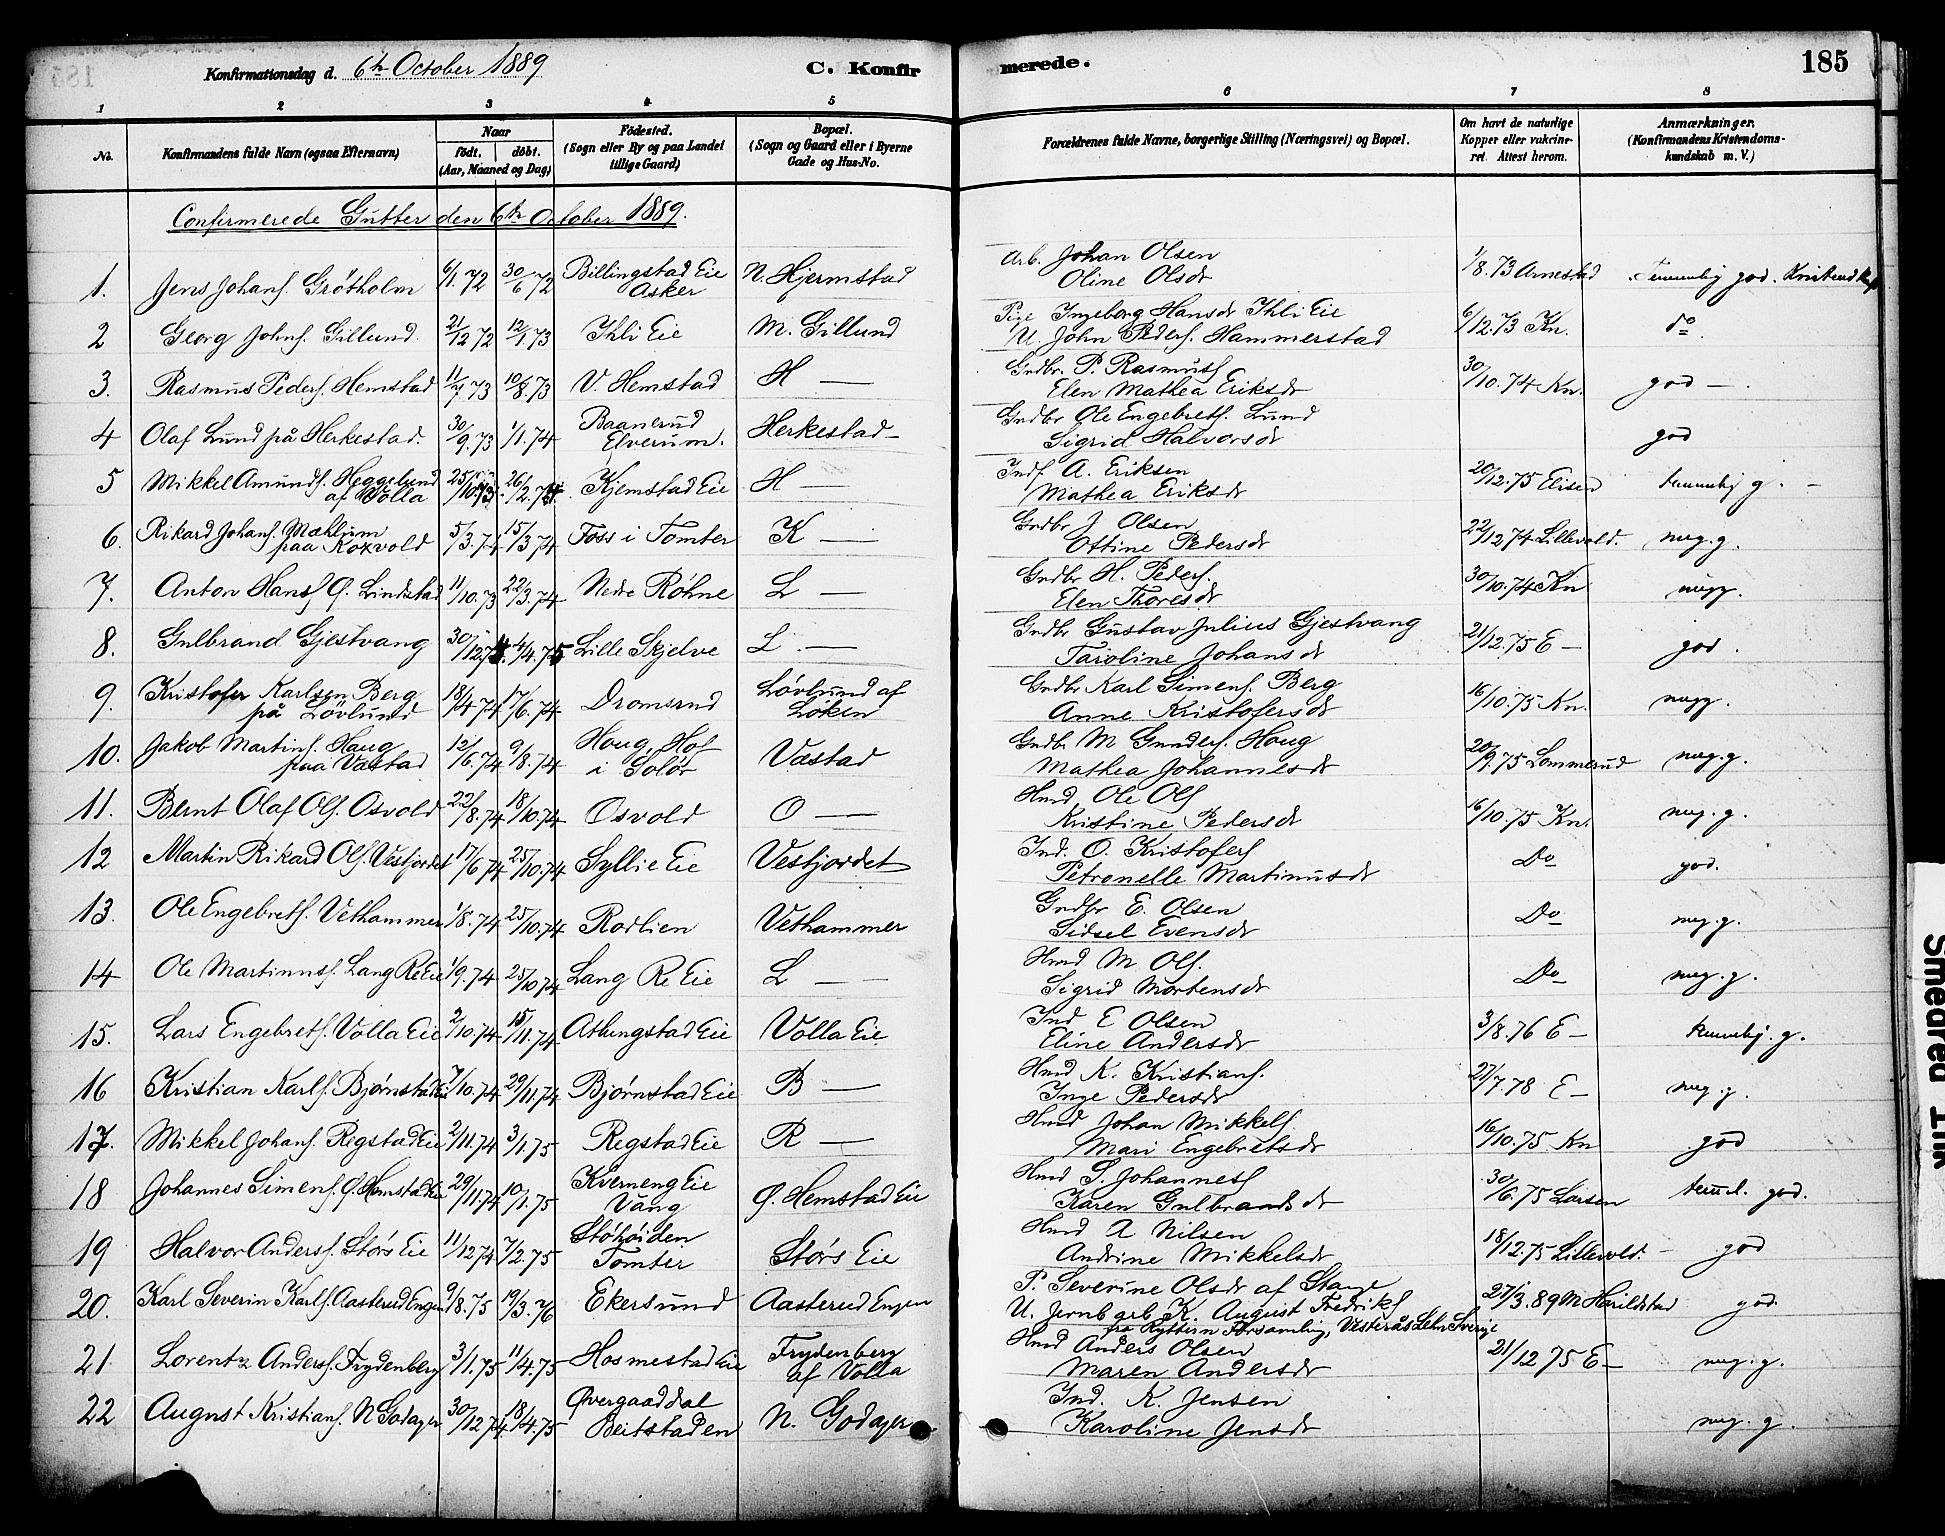 Konfirmationsdag d. 6te October 1889
C. Konfirmerede.
185
1 2 3 4 5 6 7 8
No.
Konfirmandens fulde Navn (ogsaa Efternavn)
Naar
födt. döbt.
(Aar, Maaned og Dag)
Födested.
(Sogn eller By og paa Landet
tillige Gaard)
Bopæl.
(Sogn og Gaard eller i Byerne
Gade og Hus-No.
Forældrenes fulde Navne, borgerlige Stilling (Næringsvei) og Bopæl.
Om havt de naturlige
Kopper eller vakcine-
ret. Attest herom.
Anmærkninger.
(Konfirmandens Kristendoms-
kundskab m. V.)
Confirmerede Gutter den 6te October 1889.
1. Jens Johans. Grötholm 6/1 72 30/6 72 Billingstad Eie Asker N. Hjermstad Arb. Johan Olsen
Oline Olsdr 1/8.73 Arnestad god. Kristendk
2 Georg Johns. Gillund 21/12 72 12/1 73 Ihli Eie M. Gillund Pige Ingeborg Hansdr Ihli Eie
U. John Peders. Hammerstad 6/12.73 Kn. do
3. Rasmus Peders. Hemstad 11/7 73 10/8.73 V. Hemstad H — Gndbr. P. Rasmuss
Elen Mathea Eriksdr 30/10.74 Kn. god —
4 Olaf Lund på Herkestad. 30/9.73 1/1.74 Baanerud Elverum. Herkestad — Gndbr Ole Engebrets. Lund
Sigrid Halvorsdr god
5 Mikkel Amunds. Heggelund af Volla 25/10 73 26/2.74 Kjemstad Eie H — Inds. A. Eriksen
Mathea Eriksdr 20/12.75 Elisen temmelig g. —
6. Rikard Johans. Mæhlum paa Roxvold 5/3.74 15/3 74 Foss i Tomter K — Gndbr J Olsen
Ottine Pedersdr 22/12 74 Lillevold. meg. g.
7. Anton Hans. Ø. Lindstad 11/10.73 22/3.74 Nedre Röhne L — Gndbr H. Peders.
Elen Thoresdr 30/10.74 Kn megg.
8. Gulbrand Gjestvang 30/12.74 4/4.75 Lille Skjelve L. — Gndbr Gustav Julius Gjestvang
Taroline Johansdr 21/12.75 E — god.
9. Kristofer Karlsen Berg på Lövlund 18/4 74 17/6.74 Dromsrud Lövlund af Löken Gndbr Karl Simens. Berg
Anne Kristofersdr 16/10.75 Kn. megg.
10. Jakob Martins. Haug paa Vastad 12/6.74 9/8.74 Houg, Hof i Solör Vastad Gndbr M Gunders. Houg
Mathea Johannesdr 20/9.75 Lommerud meg. g.
11. Bernt Olaf Ols. Osvold 22/8.74 18/10.74 Osvold O — Hmd. Ole Ols
Kristine Pedersdr 16/10.75 Kn. meg. g.
12 Martin Rikard Ols. Vesfjordet 17/6 74 25/10.74 Gyllie Eie Vesfjordet Ind. O. Kristofers
Petronelle Martinusdr Do god.
13. Ole Engebrets. Vethammer 1/8.74 25/10.74 Rodlien Vethammer Gndbr E. Olsen
Sidsel Evensdr Do meg. g.
14 Ole Martinus. Lang Re Eie 1/9.74 25/10.74 Lang Re Eie L — Hmd M Ols.
Sigrid Mortensdr Do meg. g.
15. Lars Engebrets. Volla Eie 2/10.74 15/11.74 Atlungstad Eie Volla Eie Ind E Olsen
Eline Andersdr 3/8.76 E — temmelig. g.
16 Kristian Karls. Bjørnstad Eie 7/10.74 29/11.74 Bjørnstad Eie B — Hmd K. Kristians.
Inge Pedersdr 27/7.78 E — meg. g.
17. Mikkel Johans. Regstad Eie 2/11.74 3/1.75 Regstad Eie R — Hmd Johan Mikkels.
Mari Engebretsdr 16/10.75 Kn god
18 Johannes Simens. Ø. Hemstad Eie 29/11.74 10/1.75 Kverneng Eie Vang Ø. Hemstad Eie Hmd S. Johannes
Karen Gulbrandsdr 30/6.75 Larsen teml. god.
19 Halvor Anders. Störs Eie 11/12 74 7/2.75 Stöhöiden Tomter Störs Eie Hmd A Nilsen
Andrine Mikkelsdr 18/12.75 Lillevold. — god
20. Karl Severin Karls. Aasterud Engen 9/8.75 19/3.76 Ekersund Aasterud Engen P. Severine Olsdr af Stange
U. Jernb arb K. August Fredriks
fra Ryttern Forsamling, Vesterås Lehn Sverige 27/3.89 M Harildstad god.
21. Lorentz Anders. Frydenberg 3/1.75 11/4.75 Hosmestad Eie Frydenberg af Volla Hmd Anders Olsen
Maren Andersdr 21/12 75 E — meg. g.
22 August Kristians. N Godager 30/12 74 18/4.75 Øvergaaddal Beitstaden N. Godager Ind. K. Jensen
Karoline Jensdr meg. g.
Smedred Trik